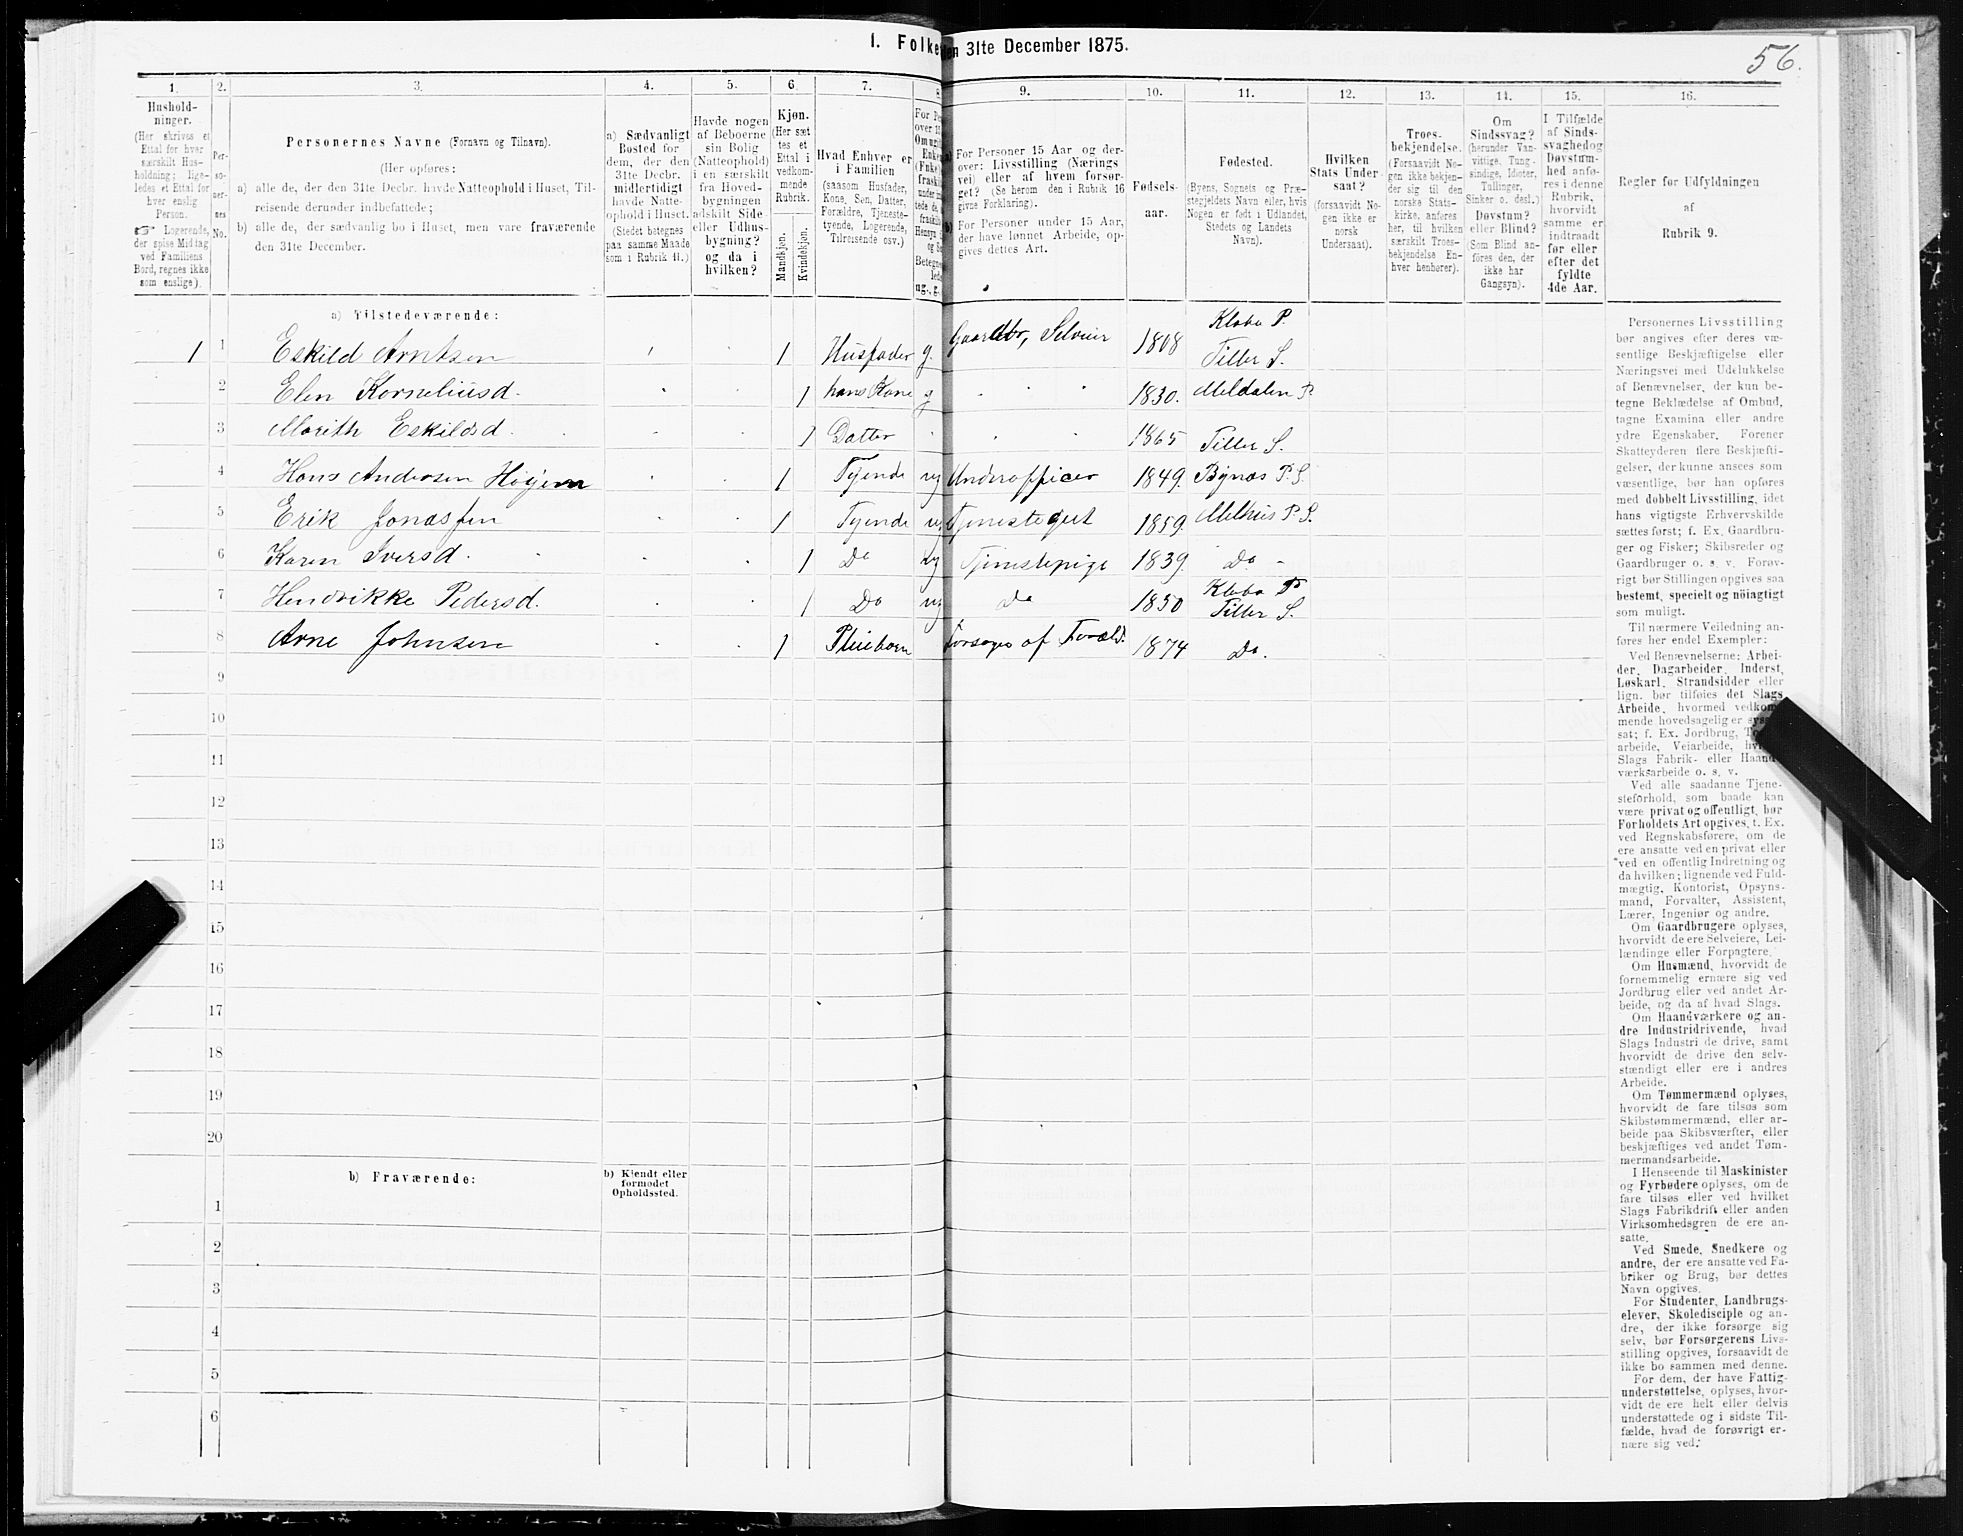 1. Folke
den 31te December 1875.
56.
1.
2.
3.
4.
5.
6
7.
8
9.
10.
11.
12.
13.
14.
15.
16.
Hushold-
ninger.
(Her skrives et
Ettal for hver
særskilt Hus-
holdning; lige-
ledes et Ettal for
hver enslig
Person.
☞ Logerende,
der spise Middag
ved Familiens
Bord, regnes ikke
som enslige).
Per-
so-
ner-
nes
No.
Personernes Navne (Fornavn og Tilnavn).
(Her opføres:
a) alle de, der den 31te Decbr. havde Natteophold i Huset, Til-
reisende derunder indbefattede;
b) alle de, der sædvanlig bo i Huset, men vare fraværende
den 31te December.
a) Sædvanligt
Bosted for
dem, der den
31te Decbr.
midlertidigt
havde Natte-
ophold i Huset.
(Stedet betegnes
paa samme Maade
som i Rubrik 11.)
Havde nogen
af Beboerne
sin Bolig
(Natteophold)
i en særskilt
fra Hoved-
bygningen
adskilt Side
eller Udhus-
bygning?
og da i
hvilken?
Kjøn.
(Her sæt
tes et
Ettal i
vedkom-
mende
Rubrik.
Mandkjøn.
Kvindekjøn.
Hvad Enhver er
i Familien
(saasom Husfader,
Kone, Søn, Datter,
Forældre, Tjeneste-
tyende, Logerende,
Tilreisende osv.)
For Personer 15 Aar og der-
over: Livsstilling (Nærings
vei) eller af hvem forsør-
get? (Se herom den i Rubrik 16
givne Forklaring).
For Personer under 15 Aar,
der have lønnet Arbeide, op-
gives dettes Art.
Fødsels-
aar.
Fødested.
(Byens, Sognets og Præ-
stegjeldets Navn eller, hvis
Nogen er født i Udlandet,
Stedets og Landets
Navn).
Hvilken
Stats Under-
saat?
(forsaavidt No-
gen ikke er
norsk
Undersaat).
Troes-
bekjendelse.
(Forsaavidt No-
gen ikke bekjen-
der sig til den
norske Stats-
kirke, anføres
her, til hvilken
særskilt Troes-
bekjendelse En-
hver henhører).
Om
Sindssvag?
(herunder Van-
vittige, Tung-
sindige, Idioter,
Tullinger,
Sinker o. desl.)
Døvstum?
eller Blind?
(Som Blind an-
føres den, der
ikke har
Gangsyn).
I Tilfælde
af Sinds-
svaghed og
Døvstum-
hed anfø-
res i denne
Rubrik,
hvorvidt
samme er
indtraadt
før eller
efter det
fyldte
4de Aar.
Regler før Udfyldningen
af
Rubrik 9.
a) Tilstedeværende:
1 1 Eskild Arntsen 1 Husfader g. Gaardbr, Selveier 1808 Klæbo P. Tiller S.
2 Elen Korneliusd. 1 hans Kone g 1830. Meldalen P
3 Marith Eskildsd. 1 Datter 1865 Tiller S.
4 Hans Andersen Høijem 1 Tyende ug Underofficer 1849. Bynæs P. S.
5 Erik Jonassen 1 Tyende ug Tjenestegut 1859. Melhus P S.
6 Karen Iversd. 1 Do ug Tjenestepige 1839. Do
7 Hendrikke Pedersd. 1 Do ug Do 1850 Klæbo P Tiller S.
8 Arne Johnsen 1 Pleiebarn forsørges af Foræld. 1874 Do.
9
10
11
12
13
14
15
16
17
18
19
20
b) Fraværende:
b) Kjendt eller
formodet
Opholdssted.
1
2
3
4
5
6
Personernes Livsstilling
bør angives efter deres væ-
sentlige Beskjæftigelse eller
Næringsvei med Udelukkelse
af Benævnelser, der kun be-
tegne Beklædelse af Ombud,
tagne Examina eller andre
ydre Egenskaber. Forener
Skatteyderen flere Beskjæfti-
gelser, der kunne ansees som
væsentlige, bør han opføres
med dobbelt Livsstilling, idet
hans vigtigste Erhvervskilde
sættes først; f. Ex. Gaardbru-
ger og Fisker; Skibsreder og
Gaardbruger o. s. v. Forøv-
rigt bør Stillingen opgives saa
bestemt, specielt og nöiagtigt
som muligt.
Til nærmere Veiledning an-
føres her endel Exempler:
Ved Benævnelserne: Arbei-
der, Dagarbeider, Inderst,
Løskarl, Strandsidder eller
lign. bør tilføies det Slags
Arbeide, hvormed vedkom-
mende hovedsagelig er syssel-
sat; f. Ex. Jordbrug,
arbeide, Veiarbeide,
Slags Fabrik- eller Haand-
værksarbeide o. s. v.
Ved alle saadanne Tjene-
steforhold, som baade kan
være privat og offentligt, bør
Forholdets Art opgives, t. Ex.
ved Regnskabsførere, om de
ere ansatte ved en privat eller
ved en offentlig Indretning og
da hvilken; lignende ved Fuld-
mægtig, Kontorist, Opsyns-
mand, Forvalter, Assistent,
Lærer, Ingeniør og andre.
Om Gaardbrugere oplyses,
hvorvidt de ere Selveiere, Lei-
lændinge eller Forpagtere.
Om Husmænd, hvorvidt de
fornemmelig ernære sig ved
Jordbrug eller ved andet Ar-
beide, og da af hvad Slags.
Om Haandværkere og an-
dre Industridrivende, hvad
Slags Industri de drive, samt
hvorvidt de drive den selv-
stændigt eller ere i andres
Arbeide.
Om Tømmermænd oplyses,
hvorvidt de fare tilsøs som
Skibstømmermænd, eller ar-
beide paa Skibsværfter, eller
beskjæftiges ved andet Tøm-
mermandsarbeide.
I Henseende til Maskinister
og Fyrbødere oplyses, om de
fare tilsøs eller ved hvilket
Slags Fabrikdrift eller anden
Virksomhedsgren de ere an-
satte.
Ved Smede, Snedkere og
andre, der ere ansatte ved Fa-
briker og Brug, bør dettes
Navn opgives.
For Studenter, Landbrugs-
elever, Skoledisciple og an-
dre, der ikke forsørge sig
selv, bør Forsørgerens Livs-
stilling opgives, forsaavidt de
ikke bo sammen med denne.
For dem, der have Fattig-
understøttelse, oplyses, hvor-
vidt de ere helt eller delvis
understøttede og i sidste Til-
fælde, hvad de forøvrigt er-
nære sig ved.